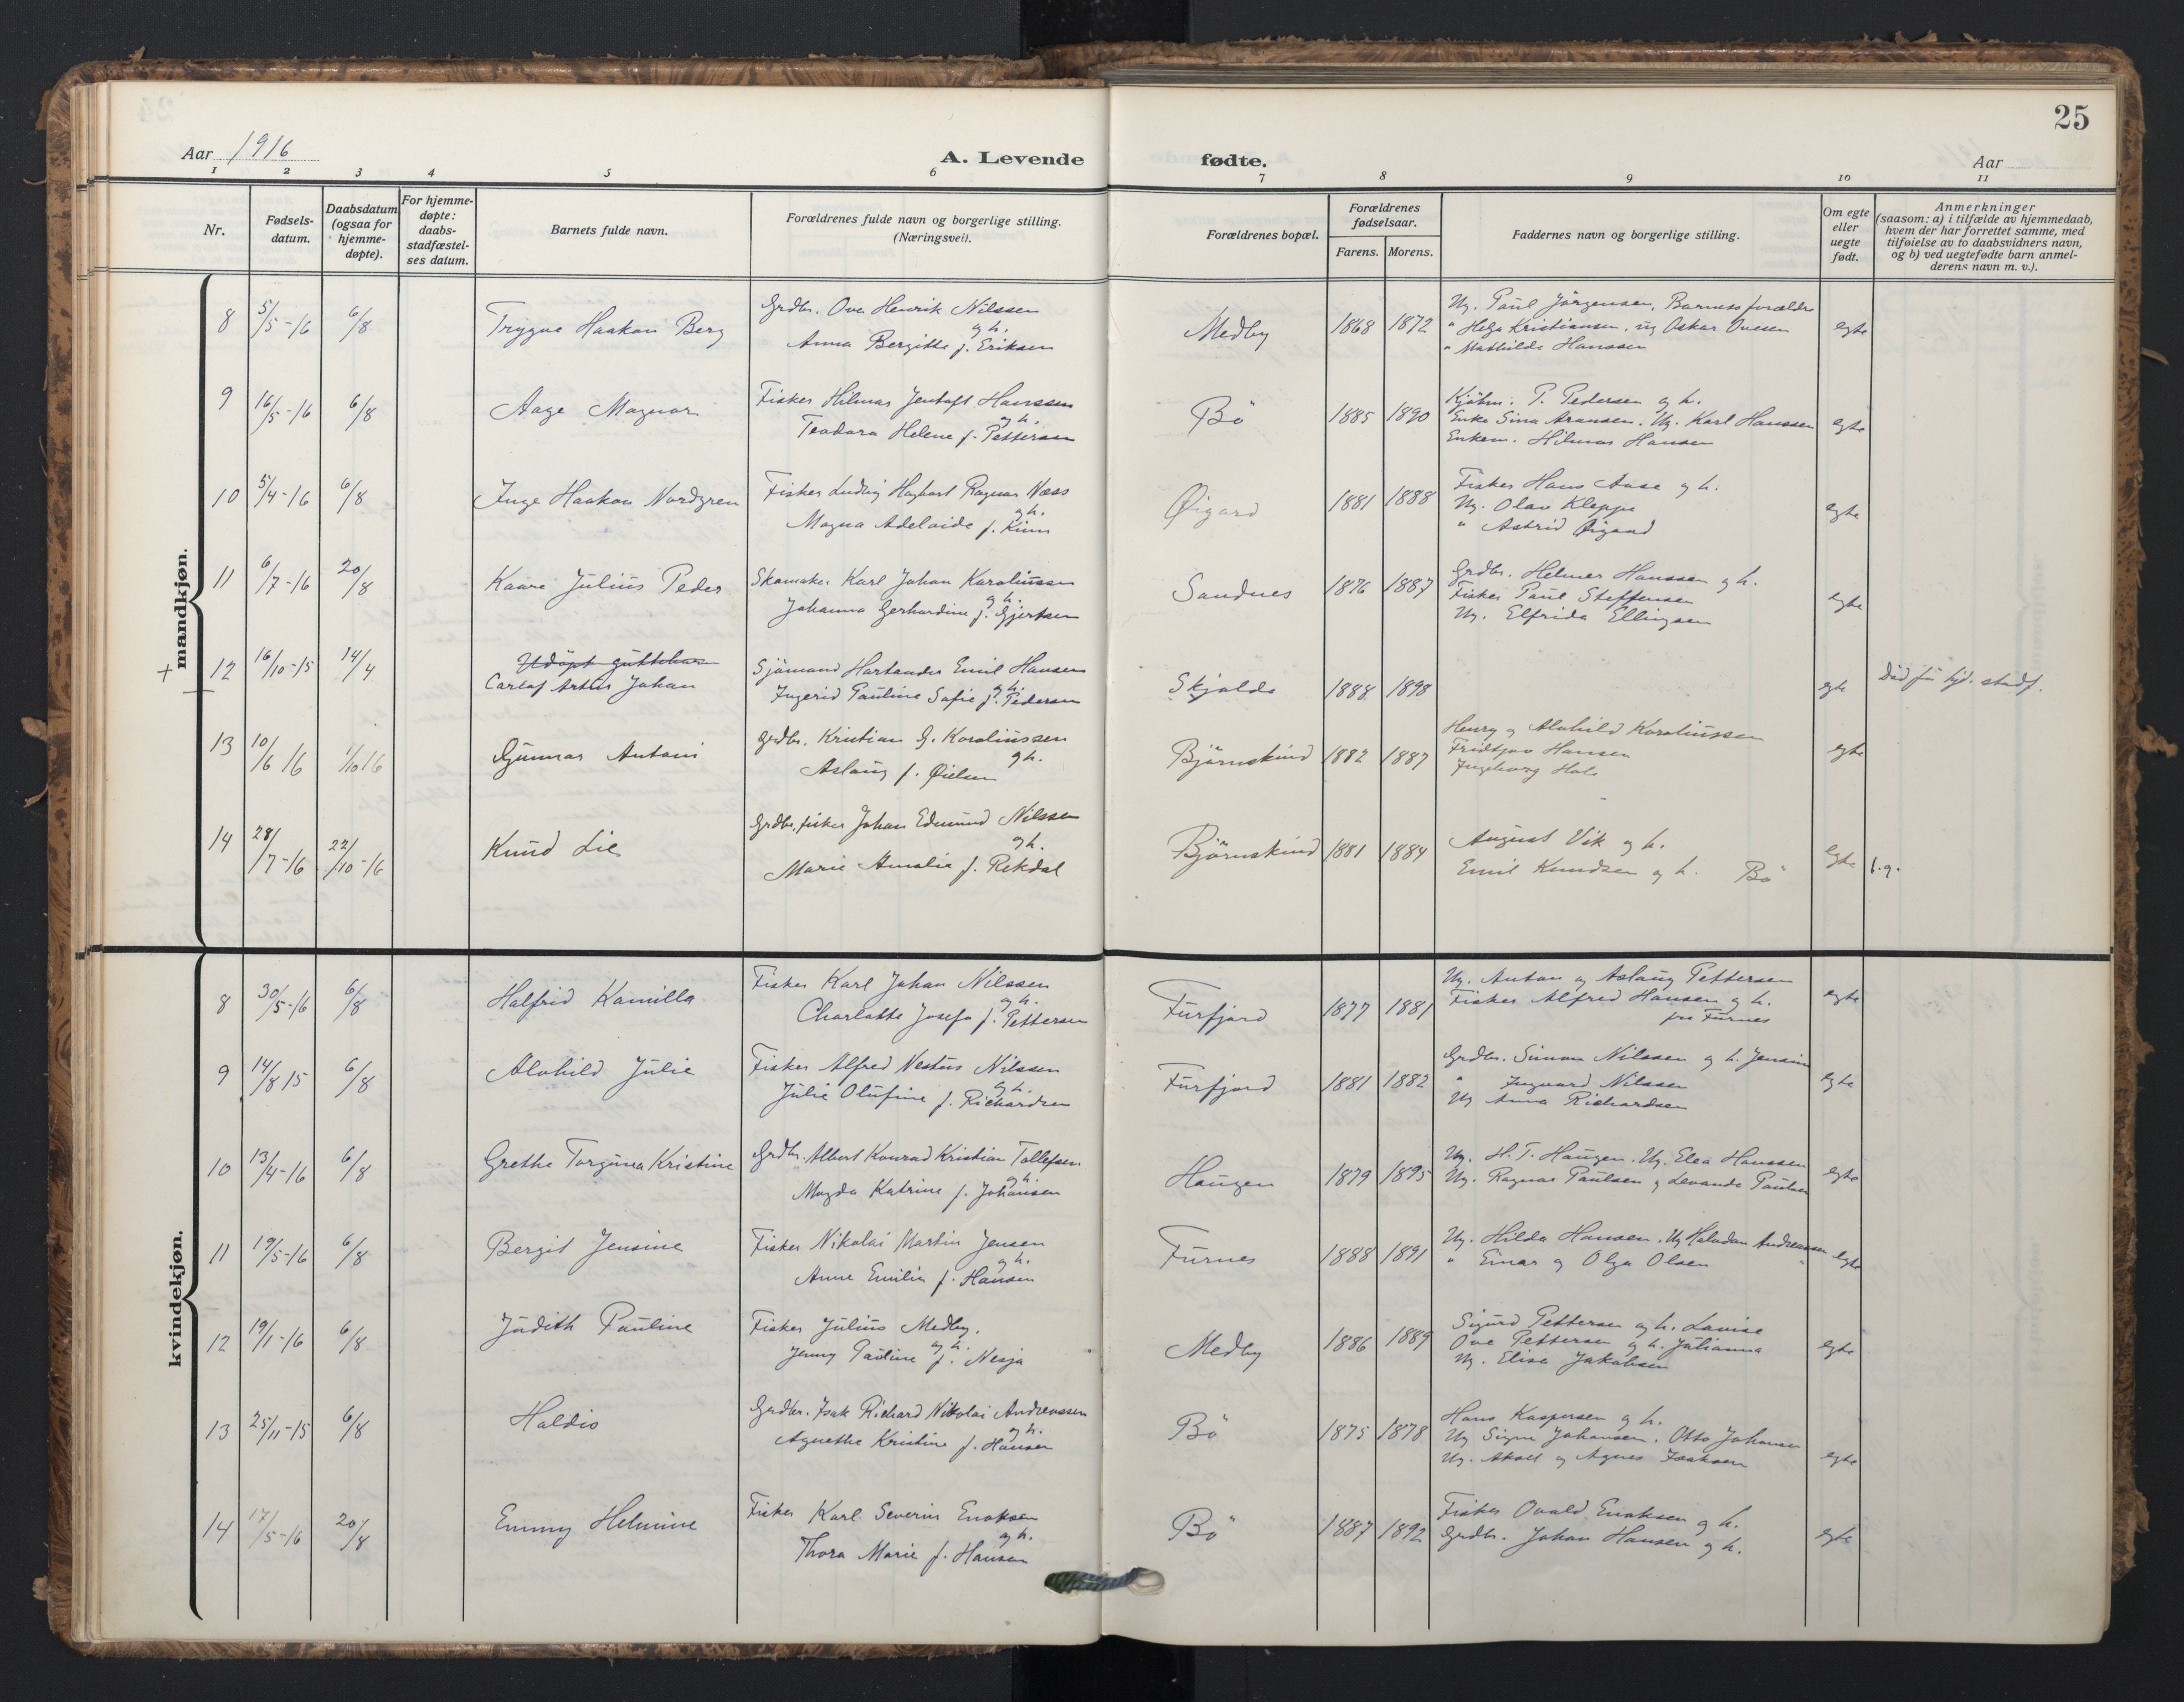 25
Aar 1916
A. Levende
fødte.
Aar
1 2 3 4 5 6 7 8 9 10 11
Nr.
Fødsels-
datum.
Daabsdatum
(ogsaa for
hjemme-
døpte).
For hjemme-
døpte:
daabs-
stadfæstel-
ses datum.
Barnets fulde navn.
Forældrenes fulde navn og borgerlige stilling.
(Næringsvei).
Forældrenes bopæl.
Forældrenes
fødselsaar.
Farens. Morens.
Faddernes navn og borgerlige stilling.
Om egte
eller
uegte
født.
Anmerkninger
(saasom: a) i tilfælde av hjemmedaab,
hvem der har forrettet samme, med
tilføielse av to daabsvidners navn,
og b) ved uegtefødte barn anmel-
derens navn m. v.).
mandkjøn.
8 5/5-16 6/8 Trygve Haakon Berg
Grdbr. Ove Henrik Nilssen
og h.
Anna Bergitte f. Eriksen
Medby 1868 1872
Ug. Paul Jörgensen, Barnets forældre
" Helga Kristiansen, ug Oskar Ovesen
" Mathilde Hanssen
egte
9 16/5-16 6/8 Aage Magnar
Fisker Hilmar Jentoft Hanssen
og h.
Teodora Helene f. Pettersen
Bö 1885 1890
Kjöbm. P. Pedersen og h.
Enke Sina Aronsen. Ug. Karl Hanssen
Enkem. Hilmar Hansen
egte
10 5/4-16 6/8 Inge Haakon Nordgren
Fisker Ludvig Hagbart Ragnar Næss
og h.
Magna Adelaide f. Kiim
Øigard 1881 1888
Fisker Hans Aase og h.
Ug. Olav Kleppe
" Astrid Øigard
egte
11 6/7-16 20/8 Kaare Julius Peder
Skomaker Karl Johan Karolinssen
og h.
Johanna Gerhardine f. Gjertsen
Sandnes 1876 1887
Grdbr. Helmer Hanssen og h.
Fisker Paul Steffensen
Ug. Elfrida Ellingsen
egte
+ 12 16/10-15 14/4 Udöpt guttebarn
Carlof Artur Johan
Sjömand Hartander Emil Hansen
og h.
Ingerid Pauline Sofie f. Pedersen
Skjolde 1888 1898
egte
Död för kjd. stadf.
13 10/6 16 1/10 16 Gunnar Antoni
Grdbr. Kristian G. Karolinssen
og h.
Aslaug f. Øielsen
Björnskind 1882 1887
Henry og Alvhild Karolinssen
Fridtjov Hansen
Ingeborg Hals
egte
14 28/7-16 22/10-16 Knud Lie
Grdbr. fisker Johan Edmund Nilssen
og h.
Marie Amalie f. Rekdal
Björnskind 1881 1884
August Vik og h.
Emil Knudsen og h. Bö
egte
f.g.
kvindekjøn.
8 30/5-16 6/8 Halfrid Kamilla
Fisker Karl Johan Nilssen
og h.
Charlotte Josefa f. Pettersen
Furfjord 1877 1881
Ug. Anton og Aslaug Pettersen
Fisker Alfred Hansen og h.
fra Furnes
egte
9 14/8 15 6/8 Alvhild Julie
Fisker Alfred Nestus Nilssen
og h.
Julie Olufine f. Richardsen
Furfjord 1881 1882
Grdbr. Simon Nilssen og h. Jensine
" Ingvard Nilssen
Ug Anna Richardsen
egte
10 13/4-16 6/8 Grethe Torguna Kristine
Grdbr. Albert Konrad Kristian Tollefsen
og h.
Magda Katrine f. Johansen
Haugen 1879 1895
Ug. H. T. Haugen. Ug. Elea Hanssen
Ug. Ragnar Paulsen og Levanda Paulsen
egte
11 19/5-16 6/8 Bergit Jensine
Fisker Nikolai Martin Jensen
og h.
Anne Emilie f. Hansen
Furnes 1888 1891
Ug. Hilda Hansen. Ug Halvdan Andreassen
" Einar og Olga Olsen
egte
12 19/1-16 6/8 Judith Pauline
Fisker Julius Medby.
og h.
Jenny Pauline f. Nesja
Medby 1886 1889
Sigurd Pettersen og h. Lovise
Ove Pettersen og h. Julianna
Ug. Elise Jakobsen
egte
13 25/11-15 6/8 Haldis
Grdbr. Isak Richard Nikolai Andreassen
og h.
Agnethe Kristine f. Hansen
Bö 1875 1878
Hans Kaspersen og h.
Ug Signe Johansen. Otto Johansen
Ug. Aksel og Agnes Isaksen
egte
14 17/5-16 20/8 Emmy Helmine
Fisker Karl Severin Enoksen
og h.
Thora Marie f. Hansen
Bö 1887 1892
Fisker Osvald Enoksen og h.
Grdbr. Johan Hansen og h.
egte